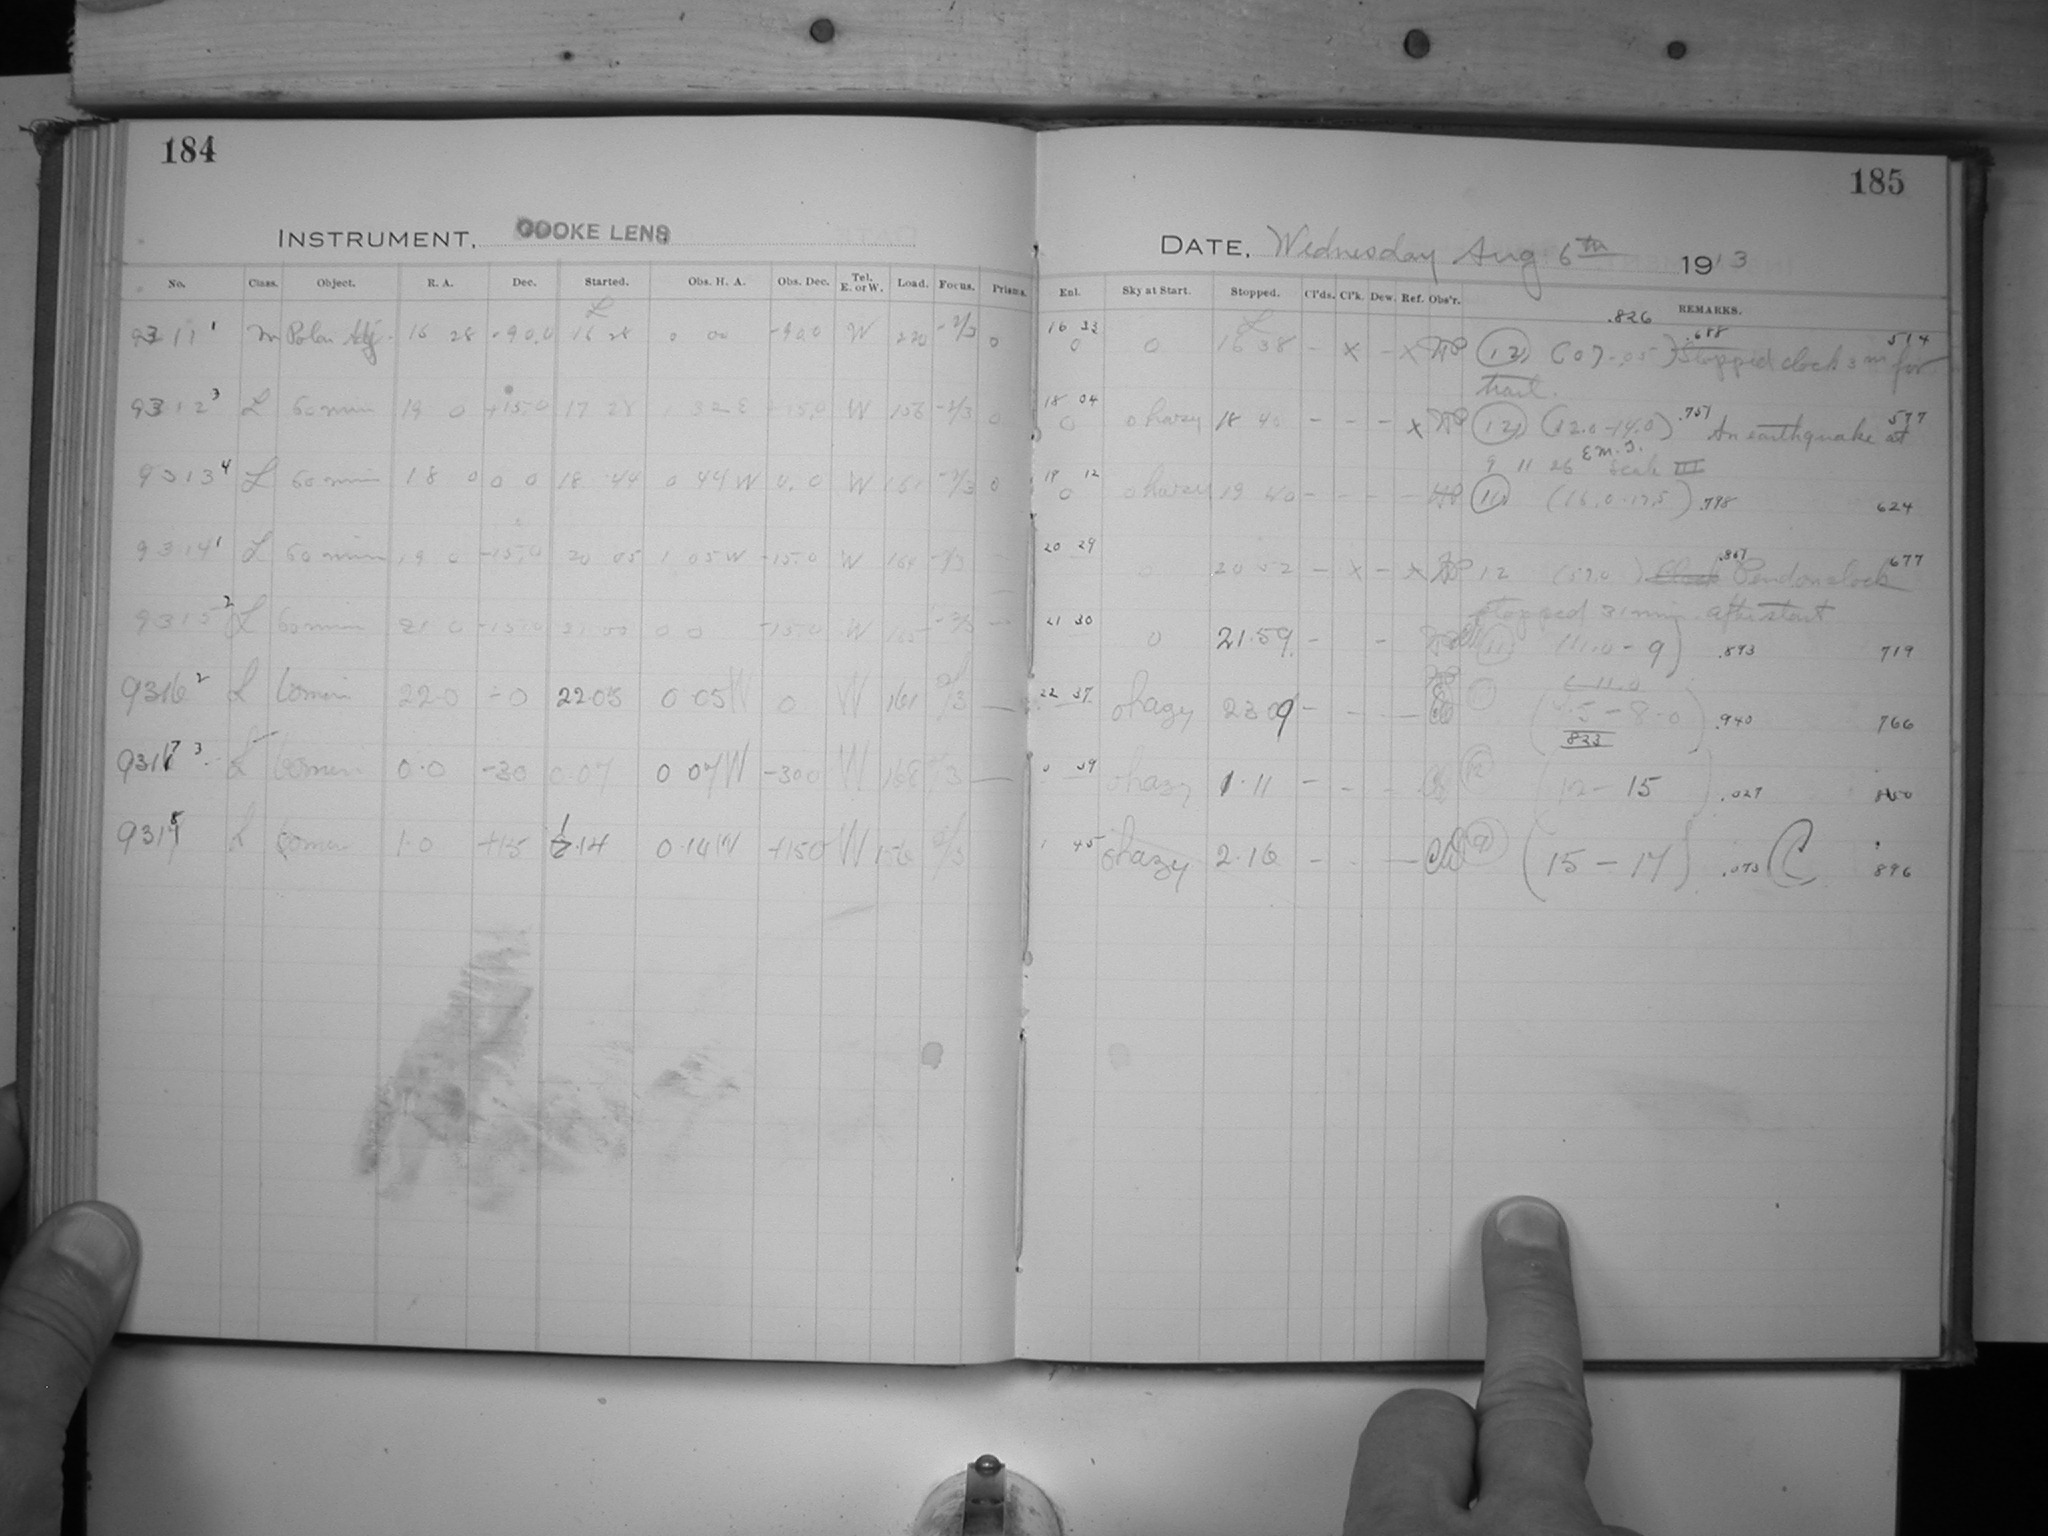 184
INSTRUMENT, COOKE LENS
No. Class. Object. R. A. Dec. Started. Obs. H. A. Obs. Dec. Tel. E. or W. Load. Focus. Prisms.
9311 1 M Polar Adj. 16 28 -90.0 16 28 0 00 -90.0 W 220 -2/3 0
9312 3 L 60 min 19 0 +15.0 17 28 1 32 E +15.0 W 156 -2/3 0
9313 4 L 60 min 18 0 0 0 18 44 0 44 W 0.0 W 161 -2/3 0
9314 1 L 60 min 19 0 -15.0 20 05 1 05 W -15.0 W 164 -2/3 —
9315 2 L 60 min 21 0 -15.0 0 0 -15.0 W 165 -2/3 —
9316 2 L 60 min 22.0 0 22.05 0 05 W 0 W 161 2/3 —
9317 3 L 60 min 0.0 -30 0.07 0 07 W -300 W 168 /3 —
9318 L 60 min 1.0 +15 1.14 0.14 W +150 W 156 2/3
185
DATE, Wednesday Aug 6th 1913
Enl. Sky at Start. Stopped. Cl'ds. Cl'k. Dew. Ref. Obs'r. REMARKS.
.826
16 33 0 0 16 38 - x - x (12) (07-.05) .688 Stopped clock 3m for 514
trail.
18 04 0 0 hazy 18 40 - - - x (12) (12.0-14.0) .757 An earthquake at 577
9 11 26 E.M.T. Scale III
19 12 0 0 hazy 19 40 - - - - (11) (16.0-17.5) .798 624
20 29 0 20 52 - x - x 12 (57.0) .867 Clock Pendon clock 677
stopped 31 min. after start
21 30 0 21.59 - - (11) (11.0-9) .893 719
22 37 0 hazy 23 09 - - — (7.5-8.0) .940 766
823
0 09 0 hazy 1.11 - - - (12) (12-15) .027 850
1 45 0 hazy 2.16 - - — (9) (15-17) .073 C 896